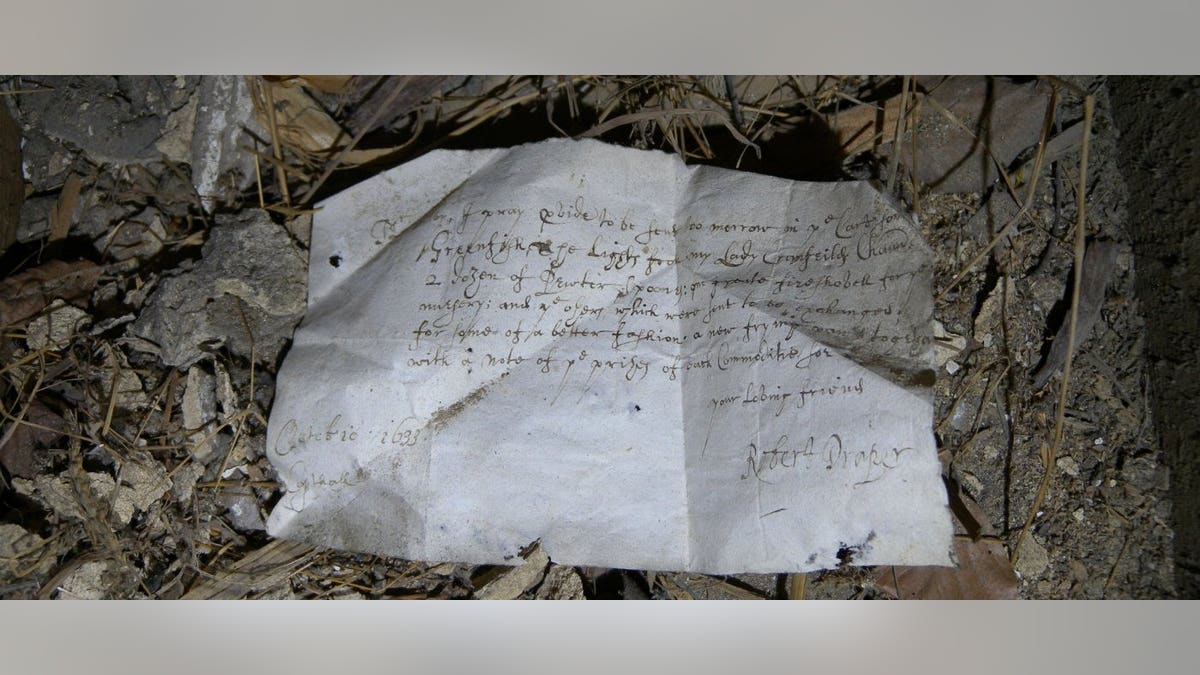 I pray pvide to be sent to morrow in ye Cart some
Greenfish, The Lights from my Lady Cranfeilds Cham
2 dozen of Pewter Spoons: one greate fireshovell for ye
nursery: and ye oters which were sent to be exchanged
for some of a better fashion, a new frying pan together
with a note of ye prises of such Commodities for
your loving friend
Robert Draper
Octobre 1633
Copthall